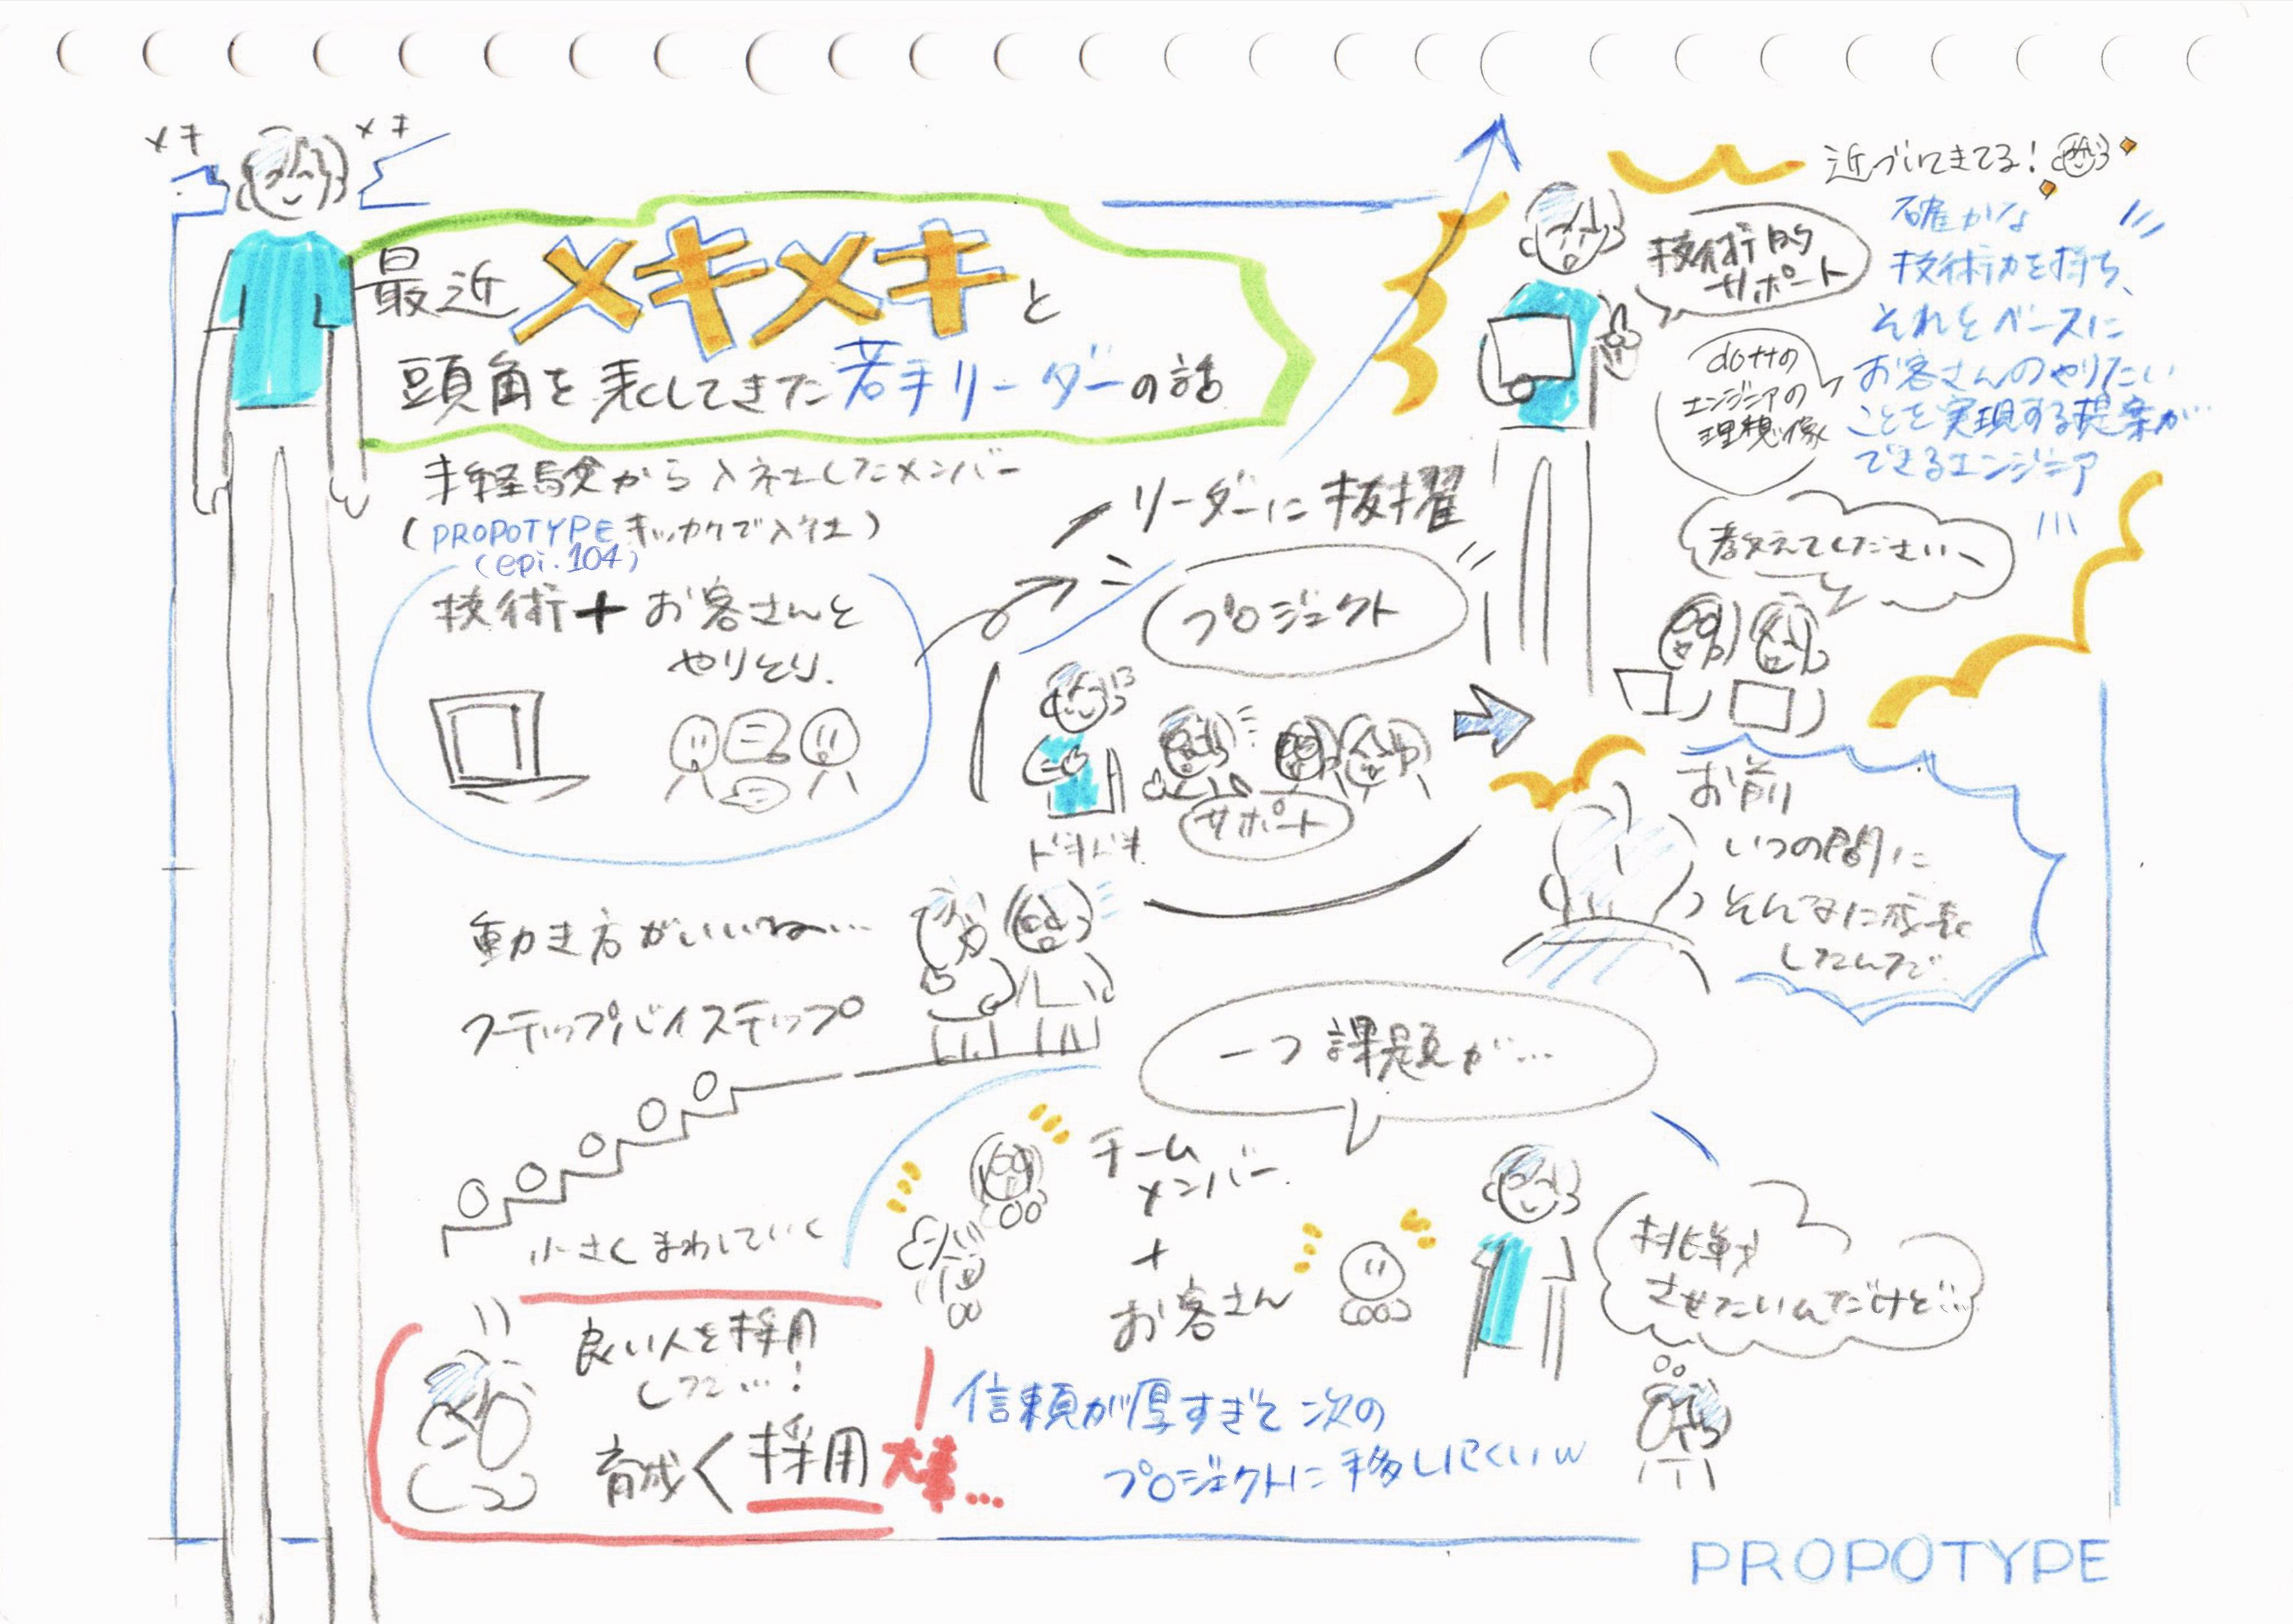 メキ
メキ
最近メキメキと
頭角を表してきた若手リーダーの話
未経験から入社したメンバー
(PROPOTYPEキッカケで入社)
(epi.104)
技術+お客さんと
やりとり.
リーダーに抜擢
プロジェクト
ドキドキ
サポート
近づいてきてる!
技術的
サポート
dottの
エンジニアの
理想像
確かな
技術力を持ち、
それをベースに
お客さんのやりたい
ことを実現する提案が
できるエンジニア
教えてください、
お前
いつの間に
そんなに成長
したんだ
動き方がいいね…
ステップバイステップ
小さくまわしていく
一つ課題が…
チーム
メンバー
+
お客さん
挑戦
させたいんだけど…
信頼が厚すぎて次の
プロジェクトに移しにくいw
良い人を採用
した…!
育成<採用大事…
PROPOTYPE